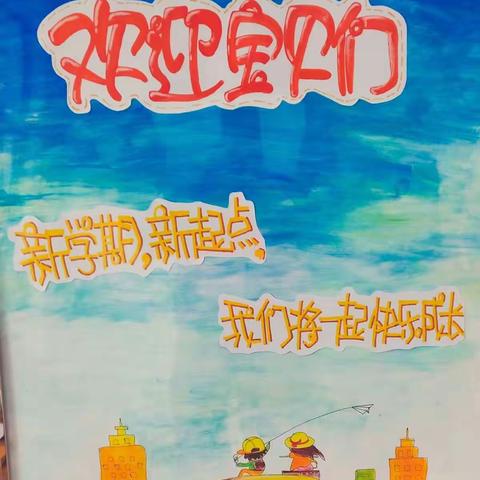 欢迎宝贝们
新学期,新起点,
我们将一起快乐成长